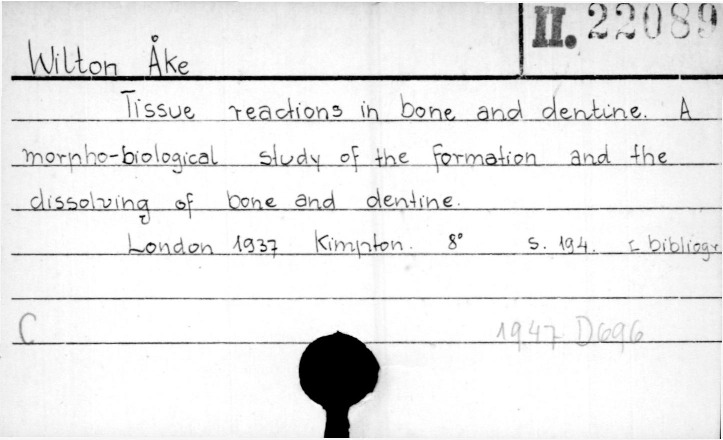 II. 22089
Wilton Åke
Tissue reactions in bone and dentine. A
morpho-biological study of the formation and the
dissolving of bone and dentine.
London 1937 Kimpton. 8° s. 194. bibliogr
C 1947 D696